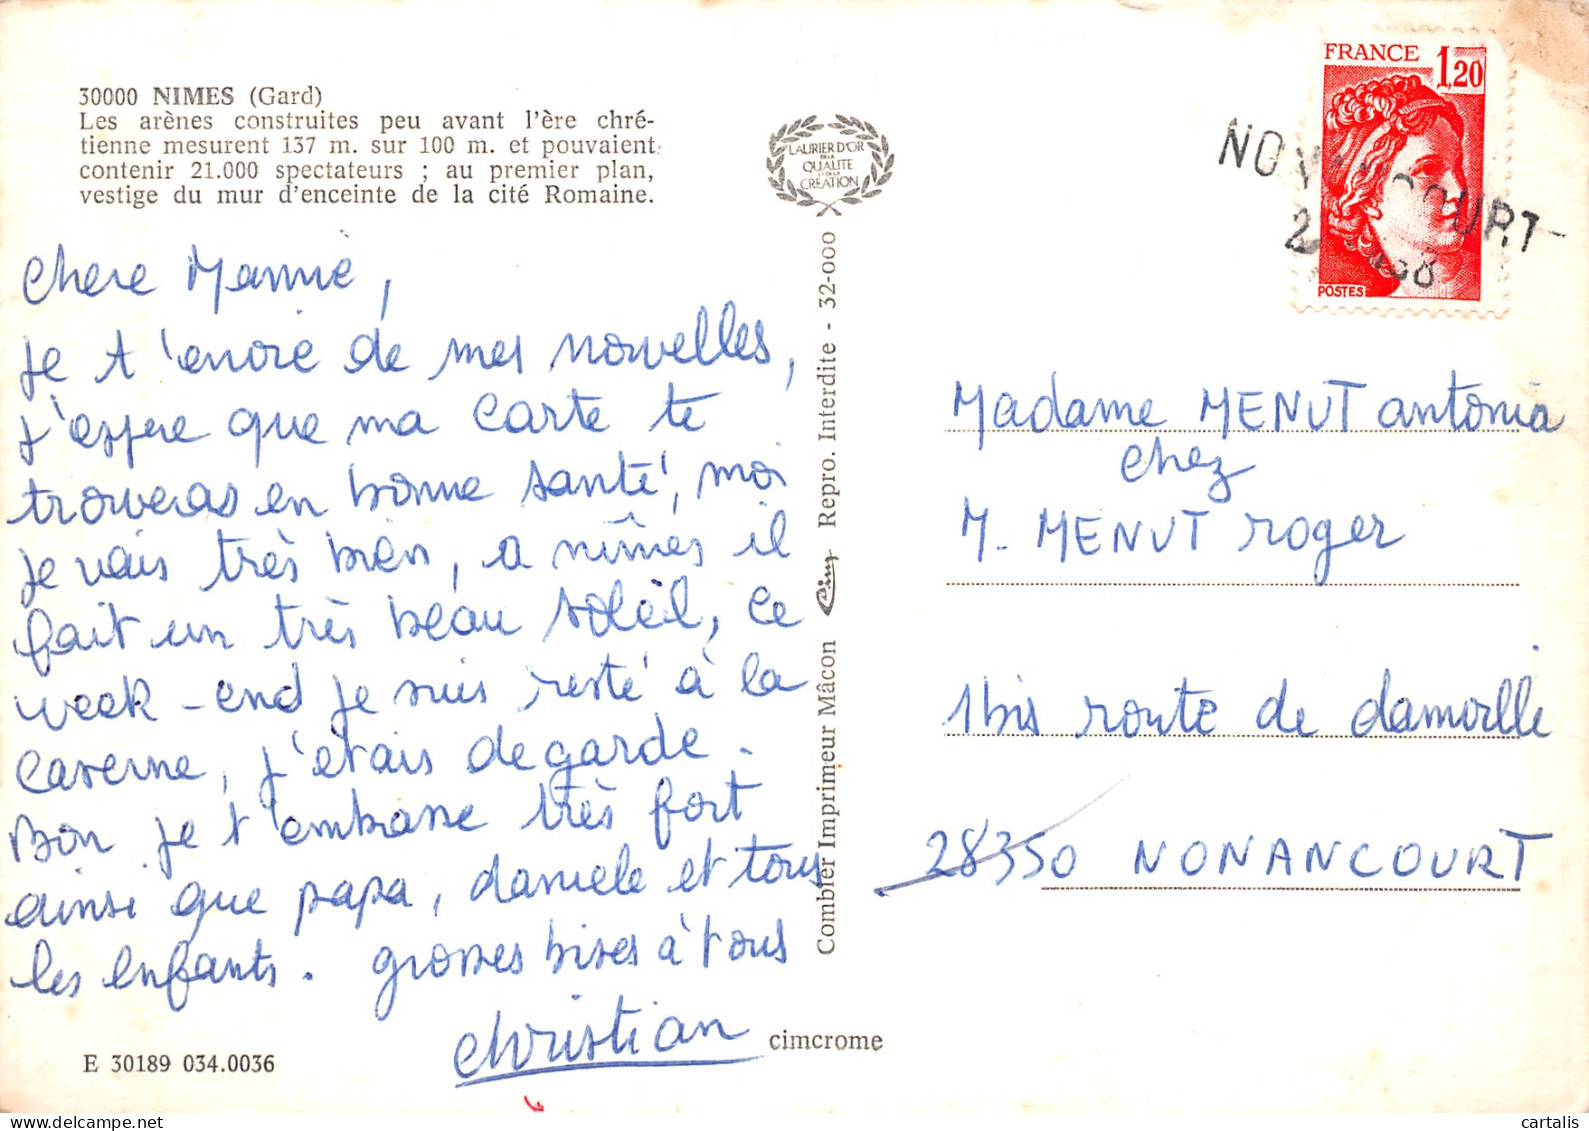 30000 NIMES (Gard)
Les arènes construites peu avant l'ère chré-
tienne mesurent 137 m. sur 100 m. et pouvaient
contenir 21.000 spectateurs ; au premier plan,
vestige du mur d'enceinte de la cité Romaine.
Chere Mamie,
Je t'envoie de mes nouvelles,
j'espere que ma carte te
trouveras en bonne santé, moi
je vais très bien, a nîmes il
fait un très beau soleil, ce
week-end je suis resté à la
caserne, j'etais de garde.
Bon je t'embrasse très fort
ainsi que papa, daniele et tous
les enfants. grosses bises à tous
christian
E 30189 034.0036
LAURIER D'OR
DE LA
QUALITE
ET DE LA
CREATION
Combier Imprimeur Mâcon Cim Repro. Interdite - 32-000
cimcrome
FRANCE 1,20
POSTES
Madame MENUT antonia
chez
M. MENUT roger
1bis route de damville
28350 NONANCOURT
cartalis